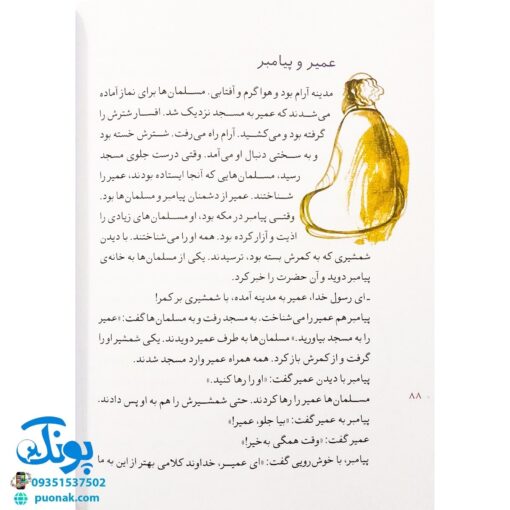 عمیر و پیامبر
مدینه آرام بود و هوا گرم و آفتابی. مسلمان‌ها برای نماز آماده
می‌شدند که عمیر به مسجد نزدیک شد. افسار شترش را
گرفته بود و می‌کشید. آرام راه می‌رفت. شترش خسته بود
و به سختی دنبال او می‌آمد. وقتی درست جلوی مسجد
رسید، مسلمان‌هایی که آنجا ایستاده بودند، عمیر را
شناختند. عمیر از دشمنان پیامبر و مسلمان‌ها بود.
وقتی پیامبر در مکه بود، او مسلمان‌های زیادی را
اذیت و آزار کرده بود. همه او را می‌شناختند. با دیدن
شمشیری که به کمرش بسته بود، ترسیدند. یکی از مسلمان‌ها به خانه‌ی
پیامبر دوید و آن حضرت را خبر کرد.
ـ ای رسول خدا، عمیر به مدینه آمده، با شمشیری بر کمر!
پیامبر هم عمیر را می‌شناخت. به مسجد رفت و به مسلمان‌ها گفت: «عمیر
را به مسجد بیاورید.» مسلمان‌ها به طرف عمیر دویدند. یکی شمشیر او را
گرفت و از کمرش باز کرد. همه همراه عمیر وارد مسجد شدند.
پیامبر با دیدن عمیر گفت: «او را رها کنید.»
مسلمان‌ها عمیر را رها کردند. حتی شمشیرش را هم به او پس دادند.
۸۸
پیامبر به عمیر گفت: «بیا جلو، عمیر!»
عمیر گفت: «وقت همگی به‌خیر!»
پیامبر، با خوش‌رویی گفت: «ای عمیر، خداوند کلامی بهتر از این به ما
پونک
09351537502
puonak.com